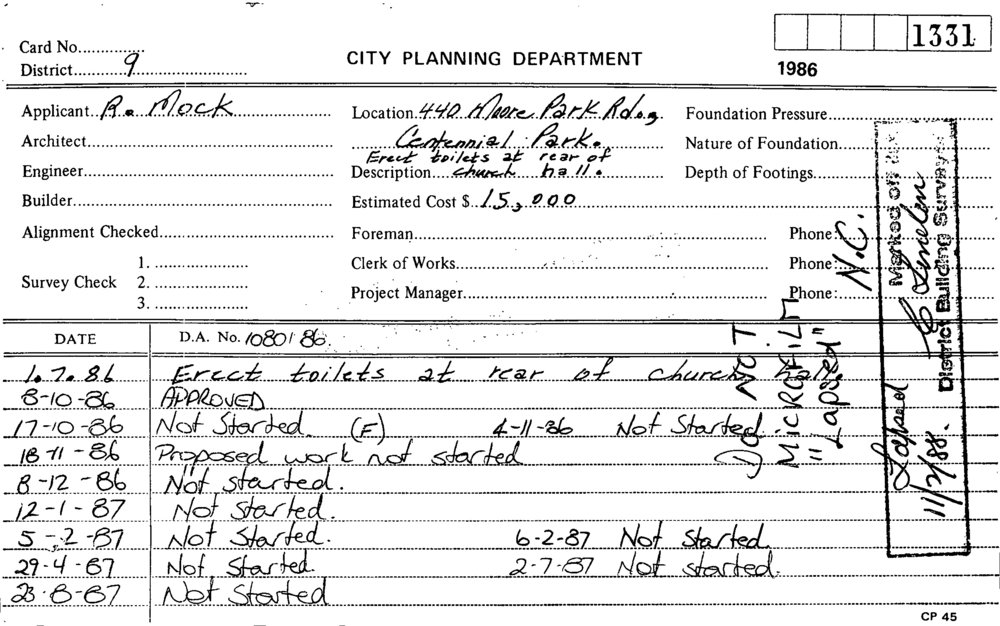 Card No............... CITY PLANNING DEPARTMENT 1331
District 9 1986
Applicant R. Mock Location 440 Moore Park Rdog Foundation Pressure
Architect Centennial Park. Nature of Foundation
Erect toilets at rear of
Engineer Description church hall. Depth of Footings
Builder Estimated Cost $ 15,000
Alignment Checked Foreman Phone:
1. Clerk of Works Phone:
Survey Check 2.
Project Manager Phone:
3.
DATE D.A. No. 1080/86.
1.7.86 Erect toilets at rear of church hall
8-10-86 APPROVED
17-10-86 Not Started. (F) 4-11-86 Not Started.
18-11-86 Proposed work not started
8-12-86 Not started.
12-1-87 Not Started.
5-2-87 Not Started. 6-2-87 Not Started.
29-4-87 Not Started. 2-7-87 Not started.
23-8-87 Not Started
DO NOT
MICROFILM
"Lapsed"
N.C.
Marked off
District Building Surveyor
Lapsed
11/2/88.
CP 45